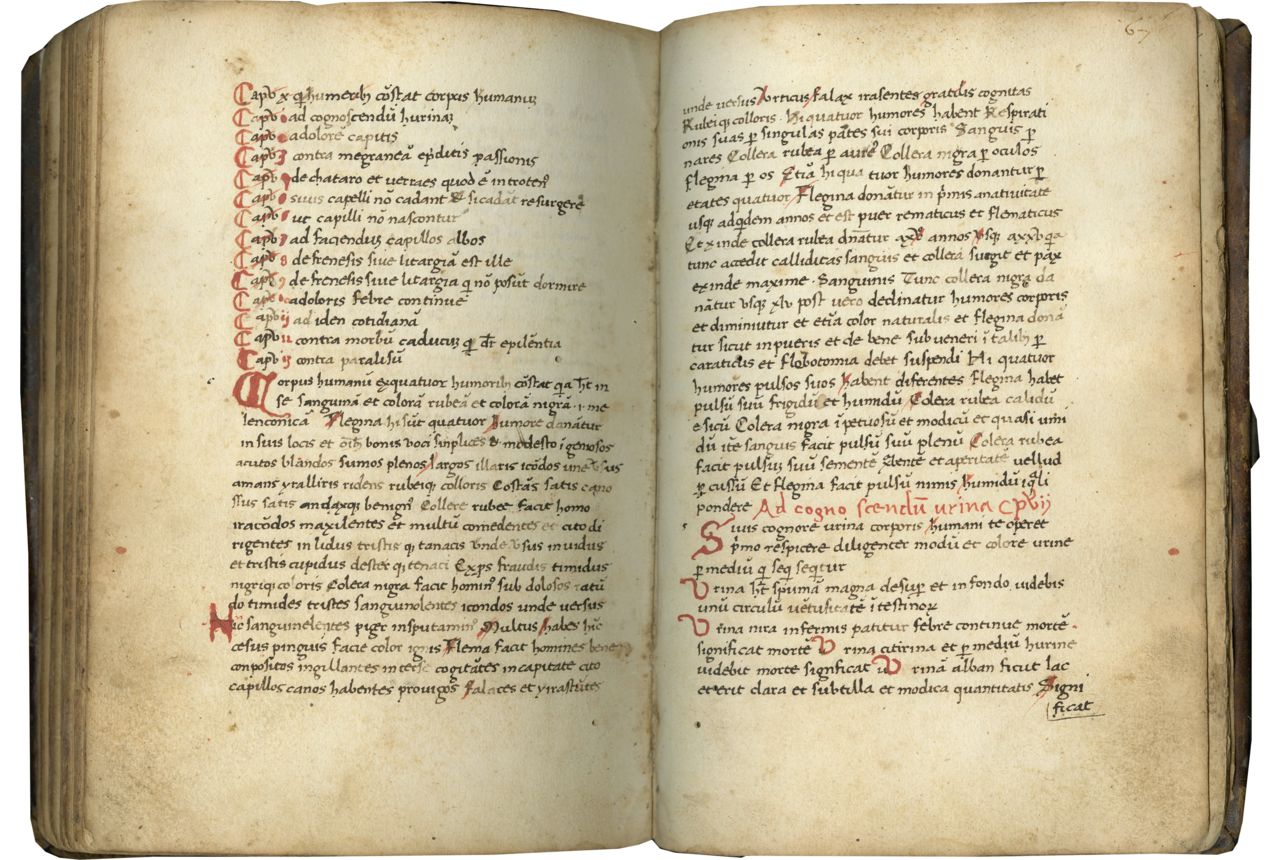 Capꝰ x qͥ humeribꝫ cōstat corpus humanuꝫ
Capꝰ ad cognoscendū hurinaꝫ
Capꝰ adolorē capitis
Capꝰ 3 contra megraneā passionis
Capꝰ de chataro et
Capꝰ sivis capelli nō cadant resurgere
Capꝰ ut capilli nō nascontur
Capꝰ ad facienduꝫ capillos albos
Capꝰ 8 de frenesis sive litargiā est ille
Capꝰ 9 de frenesis sive litargia q nō posūt dormire
Capꝰ adoloris febre continue
Capꝰ ii ad iden cotidianā
Capꝰ contra morbū caducuꝫ epilentia
Capꝰ contra paralisū
Corpus humanū exquatuor humoribꝫ cōstat qa ht in
se sanguinā et colorā rubeā et colorā nigrā . i . me
lenconicā Flegina hi sūt quatuor humore donātur
in suis locis et bonis voci simplices modesto igenosos
acutos blandos sumos plenos largos illaris icōdos
amans yralliris ridens rubeiqꝫ colloris Costās satis
satis andaxqꝫ benignꝰ Collere rubee facit homo
iracōdos maxilentes et multū comedentes et cito di
rigentes in lidus tristis qꝫ tanacis vnde vsus in vidus
et tristis cupidus dester qꝫ tenaci Exps fraudis timidus
nigriqꝫ coloris Colera nigra facit hominꝰ sub dolosos ratū
do timides tristes sanguinolentes icondos unde versus
Hic sanguinelentes piger insputaminꝰ Multus habes hic
cesus pinguis facie color ignis Flema facit homines bene
conpositos ingillantes in terse cogitātes in capitate cito
capillos canos habentes proviços Falaces et
67
unde versus Vrticus falax irasentes gratdis cognitas
Rulei qꝫ colloris . Hi quatuor humores habent Respirati
onis suas ꝑ singulas pātes sui corporis Sanguis ꝑ
nares Collera rubea ꝑ aures Collera nigra ꝑ oculos
flegina ꝑ os Etiā hi qua tuor humores donantur ꝑ
etates quatuor Flegina donātur in pͥmis anativitate
usqꝫ annos et est puer rematicus et flematicus
Et exinde collera rubea dn̄atur annos vsqꝫ axxv qa
tunc accedit calliditas sanguis et collera surgit et pax
exinde maxime . Sanguinis Tunc collera nigra da
nātur vsqꝫ xlv post vero declinatur humores corporis
et diminiutur et etiā color naturalis et flegina donā
tur sicut in pueris et de bene sub veneri ī talibꝫ ꝑ
caraticlis et flobotomia debet suspendi Hi quatuor
humores pulsos suos habent diferentes flegina habet
pulsū suū frigidū et humidū Colera rubea calidū
e sicū Colera nigra ipetuosū et modicū et quasi umi
dū itē sanguis facit pulsū suū plenū Colera rubea
facit pulsuꝫ suū sementē et aperitatē vellud
ꝑ cussū Et flegina facit pulsū nimis humidū
pondere Ad cogno scendū vrina cpꝰ ij
Sivis cognore vrina corporis humani te operet
pͥmo respicere diligenter modū et colore vrine
ꝑ mediū q seqꝫ seqͥtur
Vrina ht spūmā magna desuꝑ et in fondo videbis
unū circulū vetusitatē ītestinoꝝ
Vrina nira infermis patitur febre continue mortē .
significat mortē Vrina citirina et ꝑ mediū hurine
videbit morte significat Vrinā alban sicut lac
et erit clara et subtilla et modica quantitatis Signi
ficat